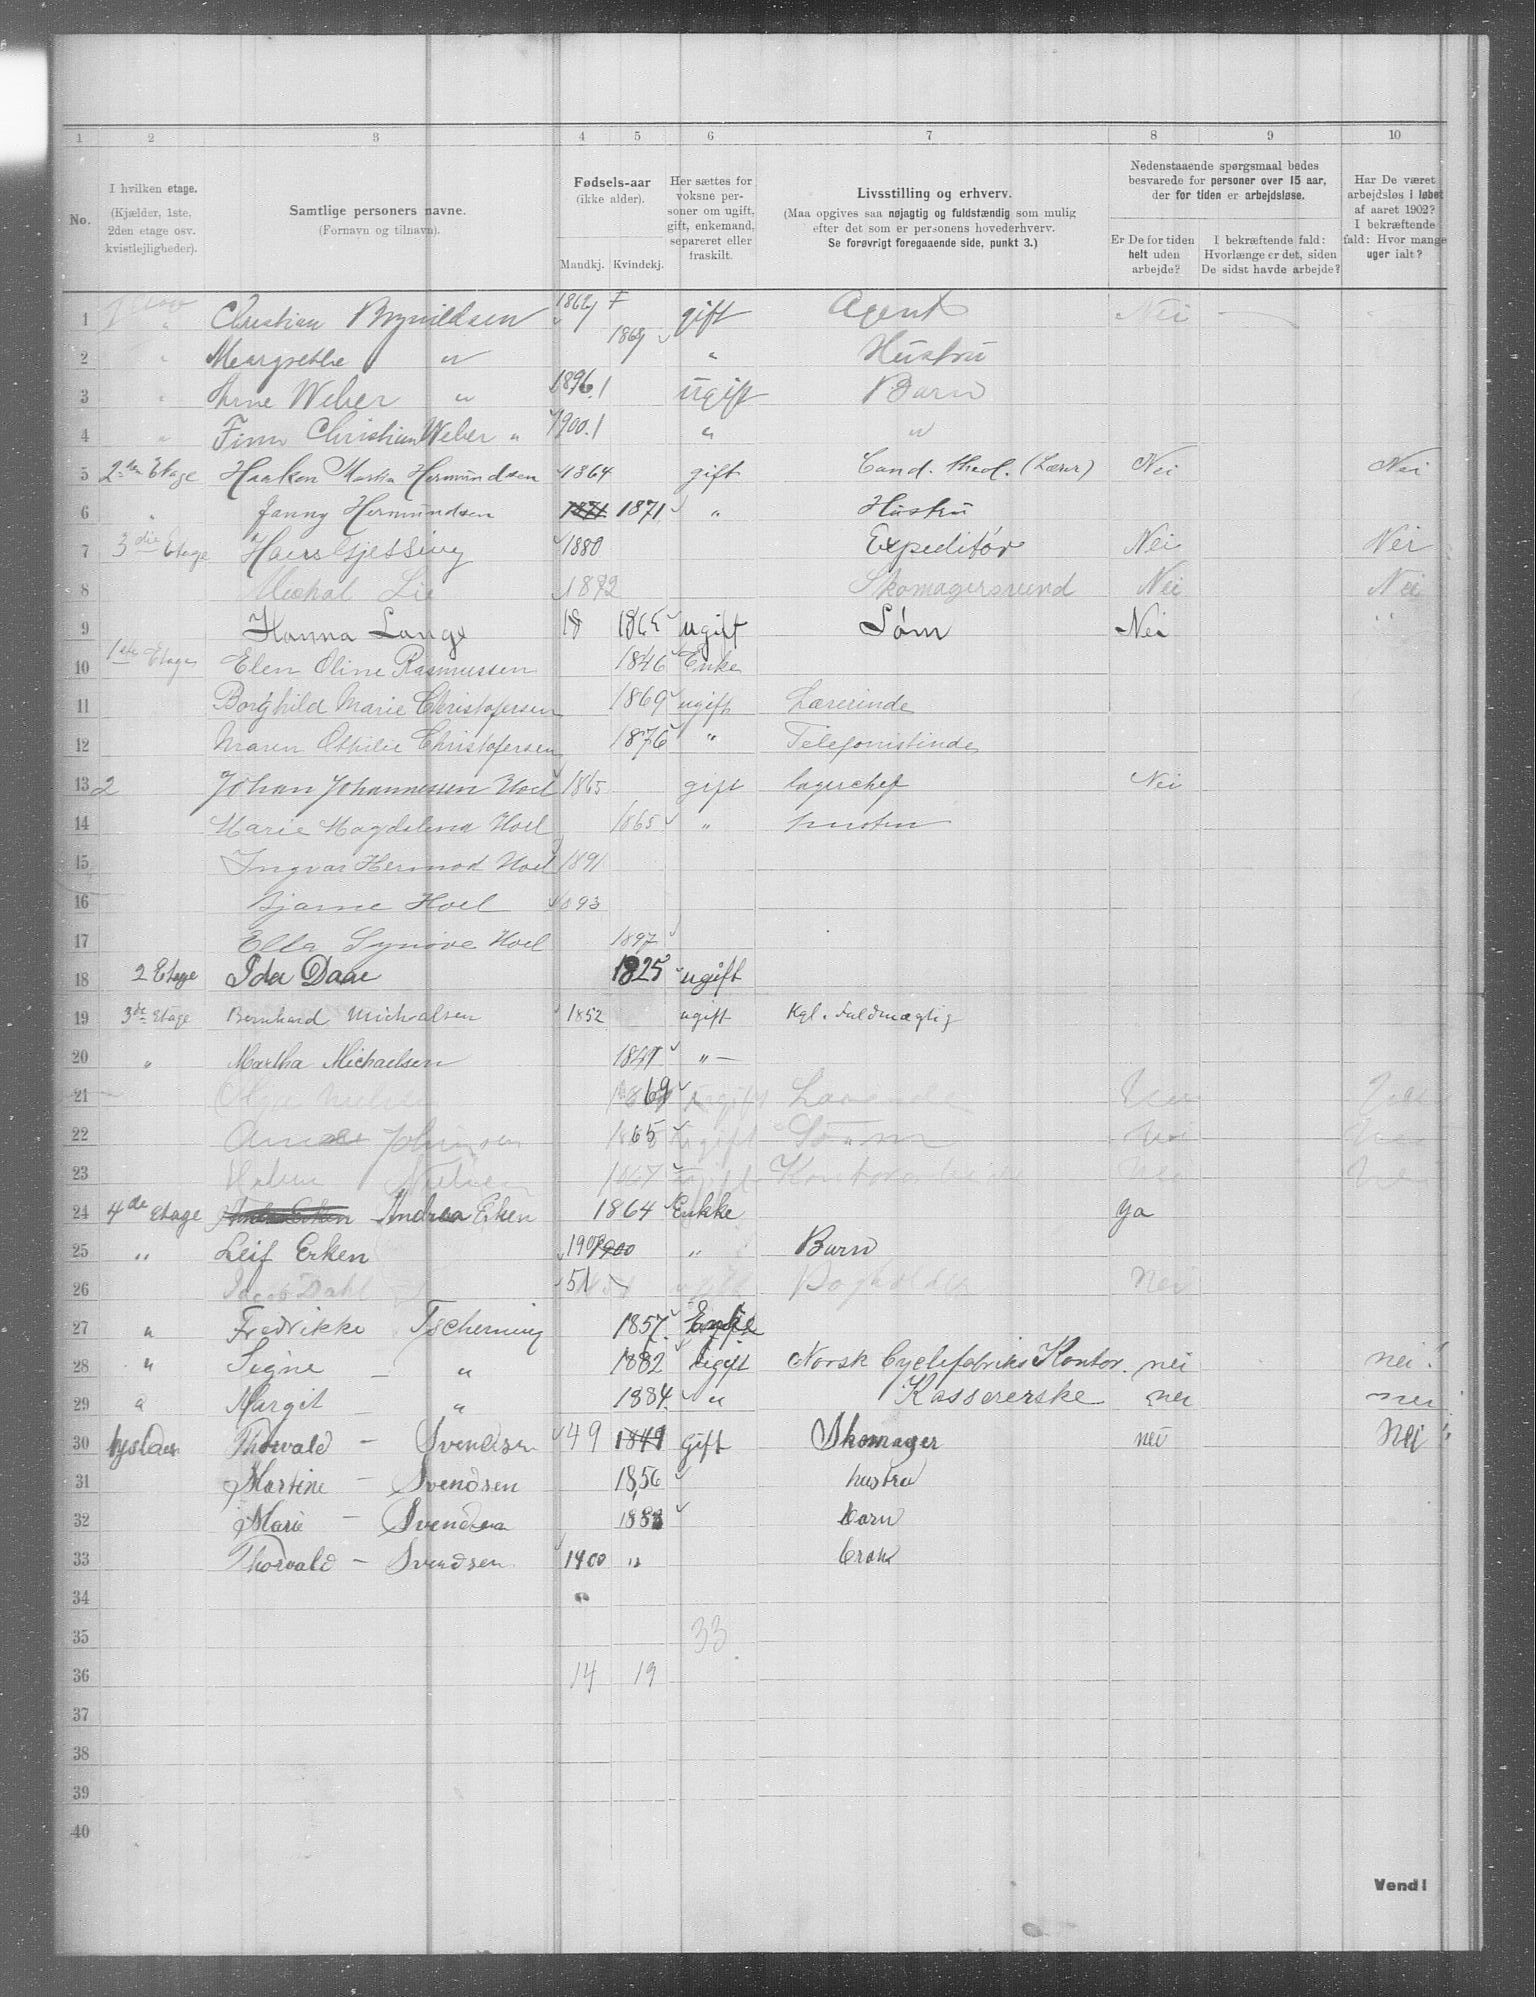 1 2 3 4 5 6 7 8 9 10
No.
I hvilken etage.
(Kjælder, 1ste,
2den etage osv.
kvistlejligheder).
Samtlige personers navne.
(Fornavn og tilnavn).
Fødsels-aar
(ikke alder).
Mandkj. Kvindekj.
Her sættes for
voksne per-
soner om ugift,
gift, enkemand,
separeret eller
fraskilt.
Livsstilling og erhverv.
(Maa opgives saa nøjagtig og fuldstændig som mulig
efter det som er personens hovederhverv.
Se forøvrigt foregaaende side, punkt 3.)
Nedenstaaende spørgsmaal bedes
besvarede for personer over 15 aar,
der for tiden er arbejdsløse.
Er De for tiden
helt uden
arbejde?
I bekræftende fald:
Hvorlænge er det, siden
De sidst havde arbejde?
Har De været
arbejdsløs i løbet
af aaret 1902?
I bekræftende
fald: Hvor mange
uger ialt?
1 " Christian Brynildsen gift Agent Nei
2 " Margrethe " 1869 " Hustru
3 " Arne Weber " 1896 ugift Barn
4 " Finn Christian Weber " 1900 " "
5 2den Etage Haakon Martin Hermundsen 1864 gift Cand. theol. (Lærer) Nei Nei
6 " Janny Hermundsen 1871 1871 " Hustru
7 3die Etage Hans Gjessing 1880 Expeditør Nei Nei
8 Lie Skomagersvend Nei Nei
9 Hanna Lange 18 1865 ugift Søm Nei "
10 1ste Etage Elen Oline Rasmussen 1846 Enke
11 Borghild Marie Christofersen 1869 ugift Lærerinde
12 Maren Othilie Christofersen 1876 " Telefonistinde
13 2 Johan Johannessen Hoel 1865 gift lagerchef Nei
14 Marie Magdalena Hoel 1865 " hustru
15 Ingvar Hermod Hoel 1891
16 Bjarne Hoel 1893
17 Ella Synøve Hoel 1897
18 2 Etage Ida Daae 1825 ugift
19 3de Etage Bernhard Michalsen 1852 ugift Kgl. Fuldmægtig
20 " Martha Michaelsen " —
21 69 ugift
22 65 ugift
23 Nielsen
24 4de Etage Andrea Erken 1864 Enkke ya
25 " Leif Erken 1900 " Barn
26 Jacob Dahl 51 Nei
27 " Fredrikke Tscherning 1857. Enke
28 " Signe — " 1882 Ugift Norsk Cyclefabriks Kontor. nei nei.
29 " Margit " 1884. " Kassererske nei nei
30 Thorvald — Svendsen 49 1849 Gift Skomager nei Nei
31 Martine — Svendsen 1856 hustru
32 Marie — Svendsen barn
33 Thorvald — Svendsen 1900 " barn
34 "
35 33
36 14 19
37
38
39
40
Vend!